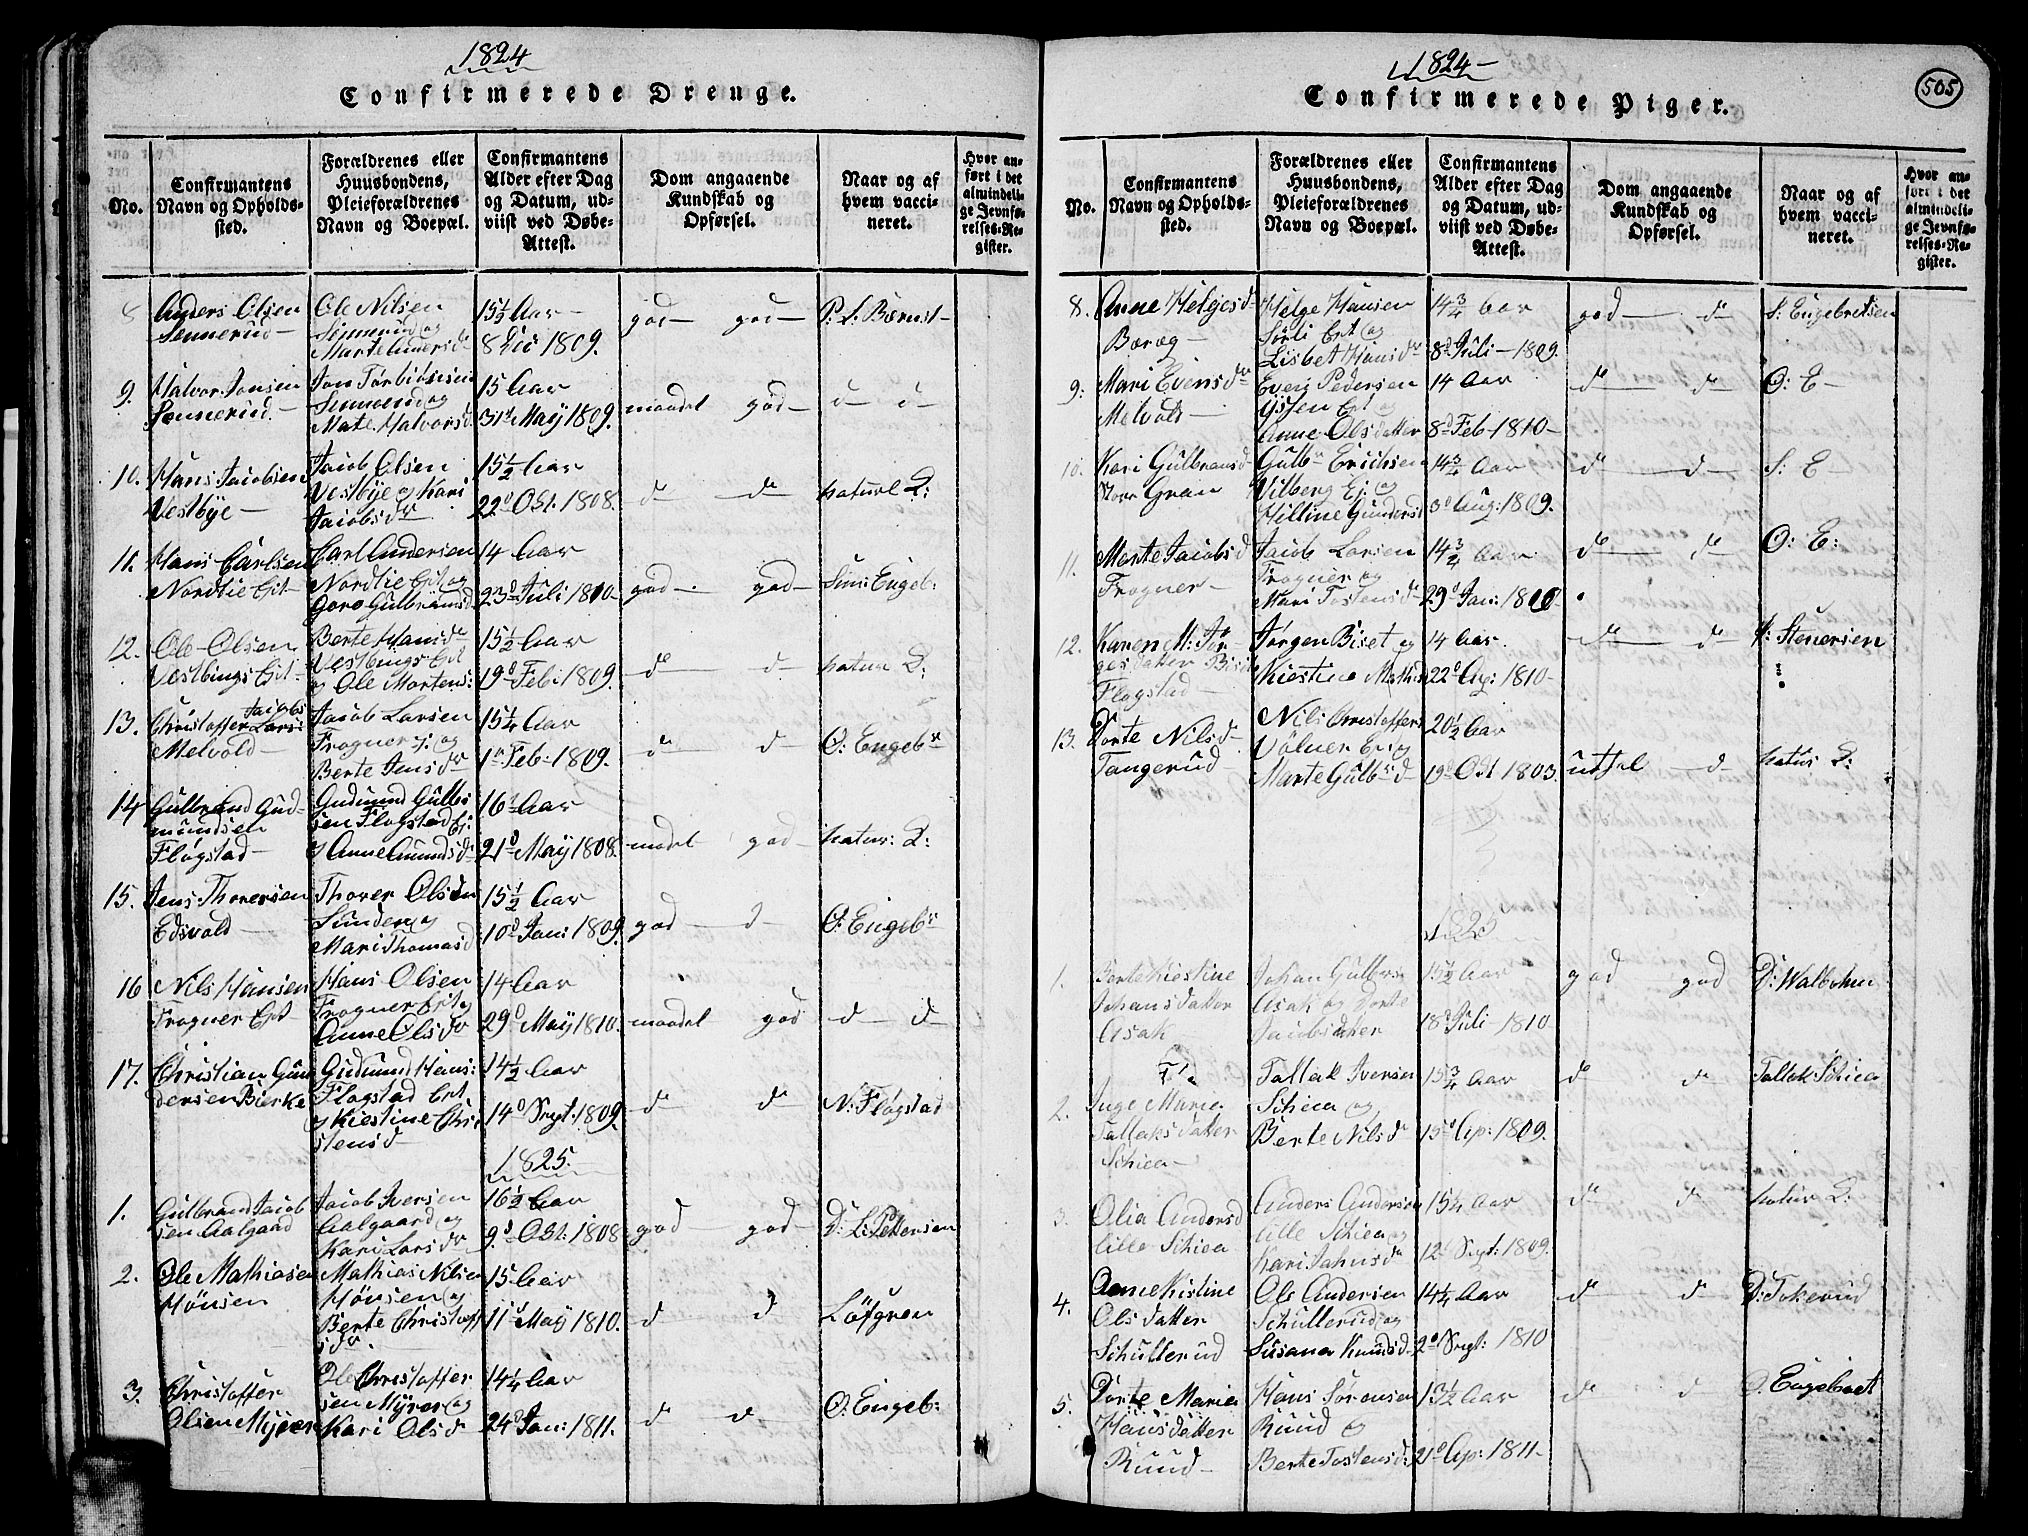 1824
Confirmerede Drenge.
No.
Confirmantens
Navn og Opholds-
sted.
Forældrenes eller
Huusbondens,
Pleieforældrenes
Navn og Boepæl.
Confirmantens
Alder efter Dag
og Datum, ud-
viist ved Døbe-
Attest.
Dom angaaende
Kundskab og
Opførsel.
Naar og af
hvem vacci-
neret.
Hvor an-
ført i det
almindeli-
ge Jevnfø-
relses-Re-
gister.
8 Anders Olsen
Sennerud
Ole Nilsen
Sinnerud og
Marte Andersd
15 1/2 Aar
8 Dec 1809.
god god
P. L. Bærnst
9. Halvor Jonsen
Sennerud
Jon Torbiørnsen
Sinnerud og
Mate Halvorsd
15 Aar
31 May 1809.
maadel god
d d
10. Hans Jacobsen
Vestbye
Jacob Olsen
Vestbye og Kari
Jacobsdr
15 1/2 Aar
22d Oct. 1808.
d d
naturl
11. Hans Carlsen
Nordlie Eit
Carl Andersen
Nordlie Eit og
Goro Gulbransd
14 Aar
23d Juli 1810
god god
Sim: Engeb:
12. Ole Olsen
Vestbings Eit
Berte Hansdr
Vestbings Eit
og Ole Mortens:
15 1/2 Aar
19d Feb: 1809.
d d
natur
13. Christoffer Jacobs
Melvold
Jacob Larsen
Frogner Ej. og
Berte Jensdr
15 1/4 Aar
1 Feb: 1809.
d d
O: Engebr
14 Gulbrand Gud-
mundsen
Fløgstad
Gudmund Gulbr
sen Flogstad Ej:
og Anne Amundsd
16 Aar
21d May 1808.
madel god
natur:
15. Jens Thorersen
Edsvold
Thorer Olsen
Sunder og
Mari Thomasd
15 1/2 Aar
10d Jan: 1809.
god d
O: Engebr
16 Nils Hansen
Frogner Eit
Hans Olsen
Frogner Eit og
Anne Olsdr
14 Aar
29d May 1810.
maadel god
d d
17. Christian Gun
dersen Bierke
Gudmund Hans:
Flogstad Eit
og Kiestine Chri
stensd
14 1/2 Aar
14d Sept: 1809.
d d
N: Fløgstad
1825.
1. Gulbrand Jacob
sen Aalgaard
Jacob Iversen
Aalgaard og
Kari Larsdr
16 1/2 Aar
9d Oct: 1808
god god
D: L: Pettersen
2. Ole Mathiasen
Hønsen
Mathias Nilsen
Hønsen og
Berte Christoff
sdr.
15 Aar
11 May 1810.
d d
Løfgren
3. Christoffer
Olsen Myrer
Ole Christoffer
sen Myrer og
Kari Olsd
14 1/4 Aar
24d Jan: 1811.
d d
O: Engeb:
1824
505
Confirmerede Piger.
No.
Confirmantens
Navn og Opholds-
sted.
Forældrenes eller
Huusbondens,
Pleieforældrenes
Navn og Boepæl.
Confirmantens
Alder efter Dag
og Datum, ud-
viist ved Døbe-
Attest.
Dom angaaende
Kundskab og
Opførsel.
Naar og af
hvem vacci-
neret.
Hvor an-
ført i det
almindeli-
ge Jevnfø-
relses-Re-
gister.
8. Anne Helgesd
Bæræg
Helge Hansen
Sørli Eit og
Lisbet Hansdr
14 3/4 Aar
8d Juli 1809.
god d
S: Engebretsen
9. Mari Evensdr
Melvold
Even Pedersen
Eit og
Anne Olsdatter
14 Aar
8d Feb 1810
d d
O: E
10. Kari Gulbransd
Store Gran
Gulbr Erichsen
Vilberg Ej: og
Hiltine Gundersd
14 3/4 Aar
3d Aug: 1809.
d d
S: E
11. Marte Jacobsd
Frogner
Jacob Larsen
Frogner og
Mari Tostensdr
14 3/4 Aar
29d Jan: 1810
d d
O: E:
12. Karen M: Jør-
gesdatter Biset
Flogstad
Jørgen Biset og
Kiestine Mathis
14 Aar
22d Ap: 1810
d d
Stenersen
13. Dorte Nilsd
Tangerud
Nils Christoffers
Vølner Ej og
Marte Gulbrd
20 1/2 Aar
19d Oct 1803
utsel d
natur
1825
1. Berte Kiestine
Johansdatter
Asak
Johan Gulbers
Asak og Dorte
Jacobsdatter
15 1/2 Aar
18d Juli 1810
god god
D: Walbohm
2. Inge Marie
Tallaksdatter
Schiea
Tallak Iversen
Schiea og
Berte Nilsdr
15 3/4 Aar
15d Ap: 1809.
d d
Tallak Schiea
3. Olia Andersd
Lille Schiea
Anders Andersen
Lille Schiea og
Kari Jahnsdr
15 1/4 Aar
12 Sept: 1809.
d d
natur
4. Anne Kistine
Olsdatter
Schullerud
Ole Andersen
Schullerud og
Susana Knudsd
14 1/4 Aar
2d Sept: 1810
d d
D: Tokerud
5. Dorte Marie
Hansdatter
Ruud
Hans Sørensen
Ruud og
Berte Tostensd:
13 1/2 Aar
21d Ap: 1811
d d
O. Engebret